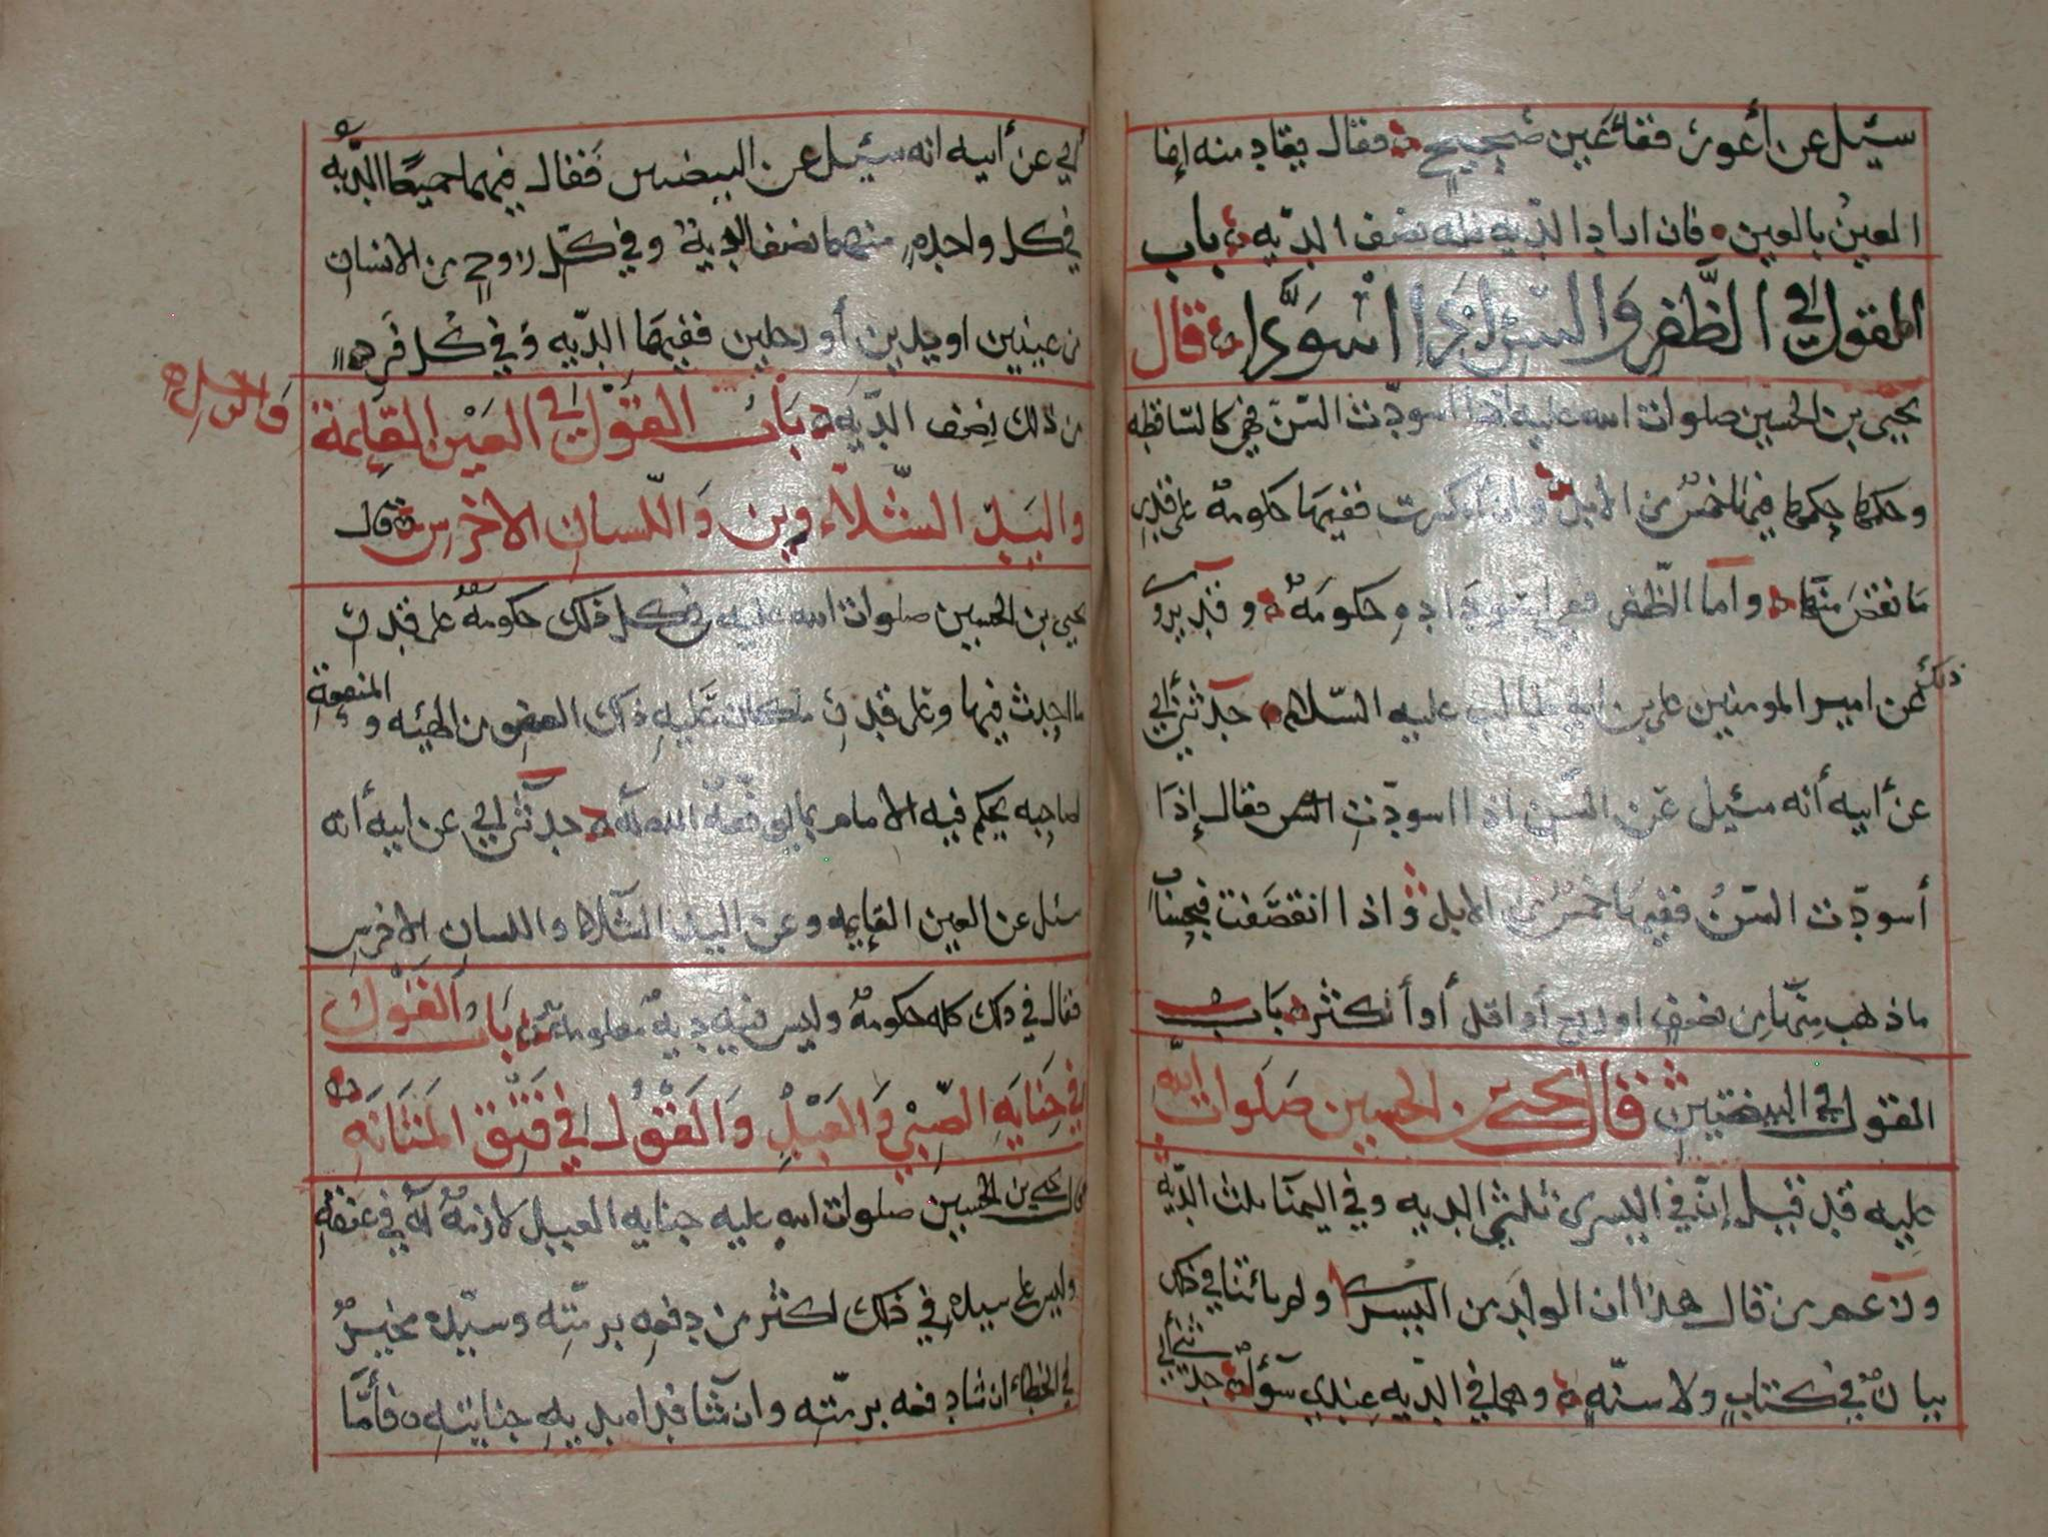 سئيل عن أعور فقأ عين صحيح فقال يقاد منه إنما
العين بالعين فان اراد الديه فله نصف الديه باب
القول في الظفر والسن إذا اسودا قال
يحيى بن الحسين صلوات الله عليه إذا اسودت السن فهي كالساقطه
وحكمها حكمها فيها خمس من الابل وان كسرت ففيها حكومة على قدر
ما نقص منها واما الظفر ففي اسوداده حكومة وقد يروى
ذلك عن امير المومنين علي بن ابي طالب عليه السلام حدثني أبي
عن أبيه أنه سئيل عن السن اذا اسودت السن فقال إذا
أسودت السن ففيها خمس من الابل واذا انقصفت فبحساب
ما ذهب منها من نصف او ربع أو اقل أو أكثر باب
القول في البيضتين فقال يحيى بن الحسين صلوات الله
عليه قد قيل إن في اليسرى ثلثي الديه وفي اليمنا ثلث الديه
وزعم من قال هذا ان الولد من اليسرى ولم ياتنا في ذلك
بيان في كتاب ولا سنه وهما في الديه عندي سوآء حدثني
أبي عن أبيه انه سئيل عن البيضتين فقال فيهما جميعا الديه
في كل واحده منهما نصف الدية وفي كل زوج من الانسان
من عينين او يدين أو رجلين ففيهما الديه وفي كل فرد
من ذلك نصف الديه باب القول في العين القايمة
والرجل
واليد الشلاء واللسان الاخرس قال
يحيى بن الحسين صلوات الله عليه في كل ذلك حكومة على قدر
ما احدث فيها وعلى قدر ما كان عليه ذلك العضو من الهيئه والمنفعة
لصاحبه يحكم فيه الامام بما يوفقه الله له حدثني أبي عن ابيه أنه
سئل عن العين القايمه وعن اليد الشلاء واللسان الاخرس
فقال في ذلك كله حكومة وليس فيه دية معلومة باب القول
في جنايه الصبي والعبد والقول في فتق المثانه
قال يحيى بن الحسين صلوات الله عليه جنايه العبد لازمة له في عنقه
وليس على سيده في ذلك اكثر من دفعه برمته وسيده مخير
في الخطاء ان شا دفعه برمته وان شا فداه بديه جنايته فأما